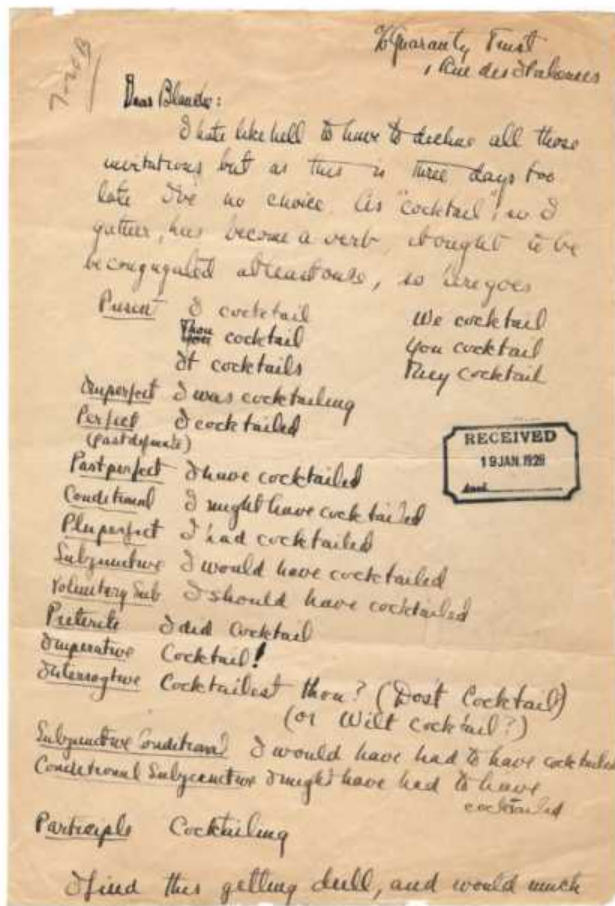 ℅ Guaranty Trust
1 Rue des Italiennes
Dear Blanche:
I hate like hell to have to decline all those
invitations but as this is three days too
late I've no choice. As "cocktail", so I
gather, has become a verb, it ought to be
be conjugated at least once, so here goes
Present I cocktail We cocktail
Thou cocktail You cocktail
It cocktails They cocktail
Imperfect I was cocktailing
Perfect I cocktailed
(past definite)
RECEIVED
19 JAN. 1928
Past perfect I have cocktailed
Conditional I might have cocktailed
Pluperfect I had cocktailed
Subjunctive I would have cocktailed
Voluntary Sub I should have cocktailed
Preterite I did cocktail
Imperative Cocktail!
Interrogtive Cocktailest thou? (Dos't Cocktail)
(or Wilt Cocktail?)
Subjunctive Conditional I would have had to have cocktailed
Conditional Subjunctive I might have had to have
cocktailed
Participle Cocktailing
I find this getting dull, and would much